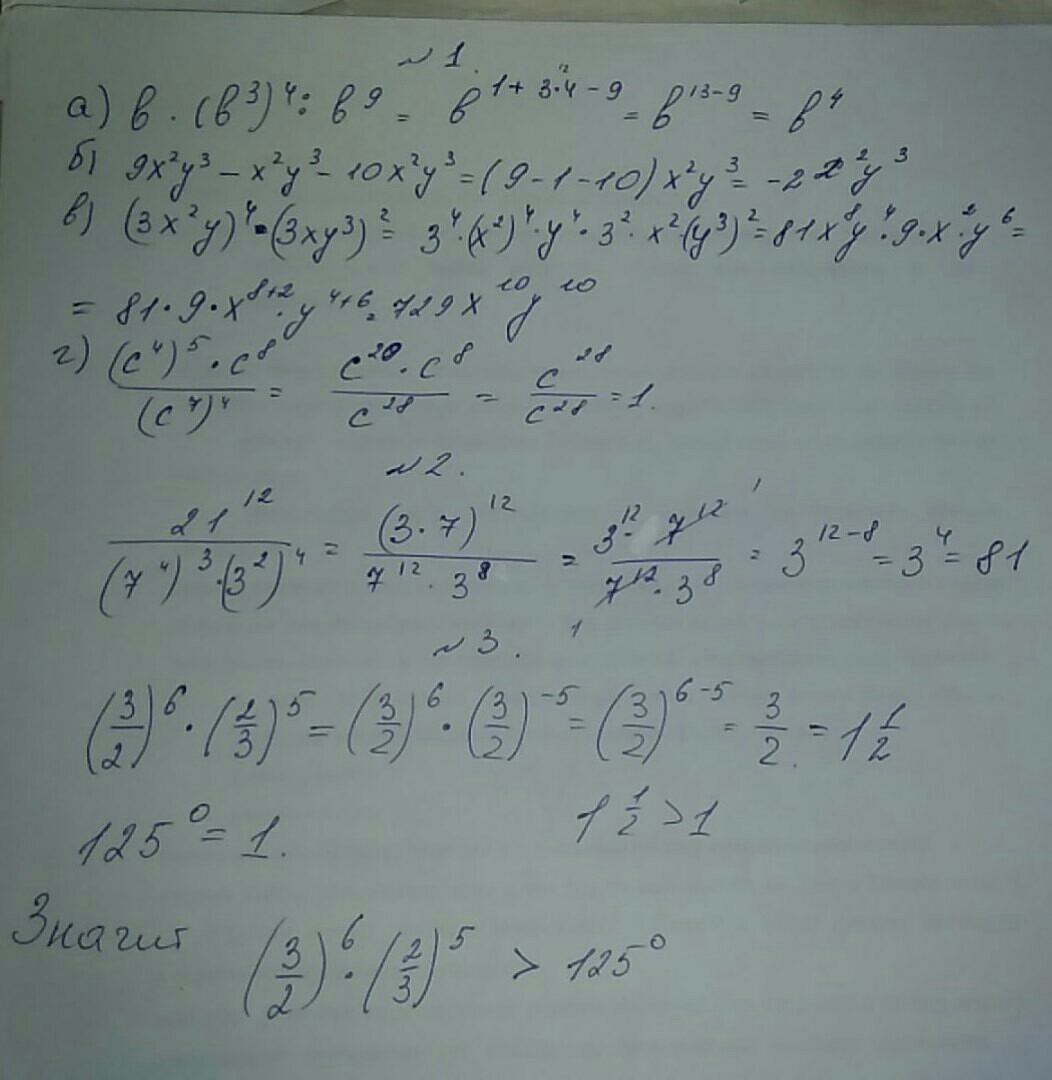 ~ 1.
а) b · (b³)⁴ : b⁹ = b^(1 + 3·4 – 9) = b^(13–9) = b⁴
б) 9x²y³ – x²y³ – 10x²y³ = (9 – 1 – 10) x²y³ = –2x²y³
в) (3x²y)⁴ · (3xy³)² = 3⁴·(x²)⁴·y⁴·3²·x²·(y³)² = 81x⁸y⁴·9·x²·y⁶ =
= 81·9·x^(8+2)·y^(4+6) = 729x¹⁰y¹⁰
г) ((c⁴)⁵ · c⁸)/(c⁷)⁴ = (c²⁰ · c⁸)/c²⁸ = c²⁸/c²⁸ = 1.
~ 2.
21¹²/((7⁴)³·(3²)⁴) = (3·7)¹²/(7¹²·3⁸) = (3¹²·7¹²)/(7¹²·3⁸) = 3^(12–8) = 3⁴ = 81
~ 3.
(3/2)⁶ · (2/3)⁵ = (3/2)⁶ · (3/2)⁻⁵ = (3/2)^(6–5) = 3/2 = 1 1/2
125⁰ = 1. 1 1/2 > 1
Значит (3/2)⁶ · (2/3)⁵ > 125⁰